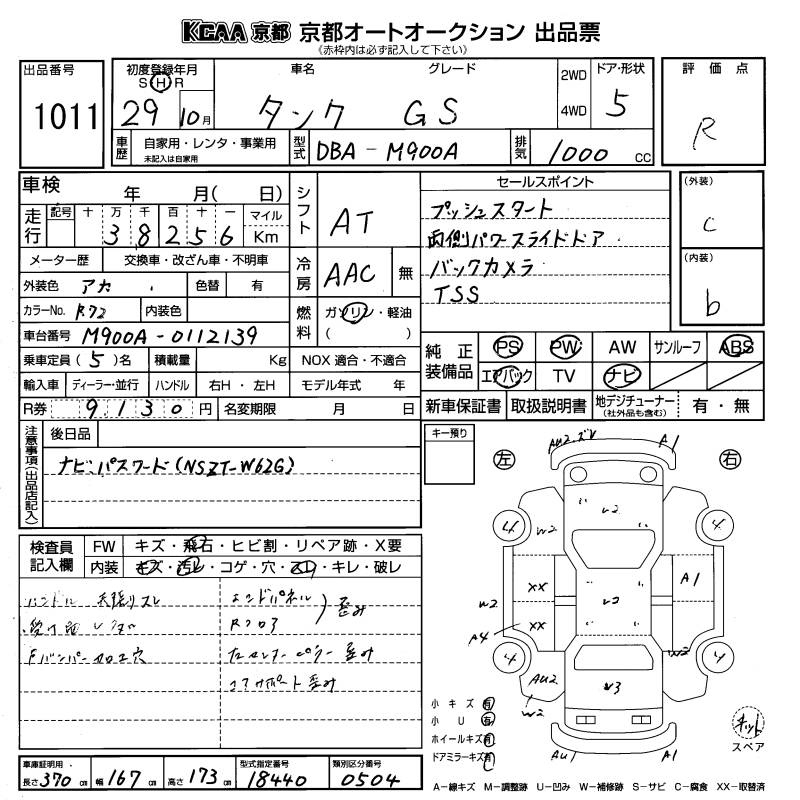 KCAA 京都 京都オートオークション 出品票
《赤枠内は必ず記入して下さい》
出品番号 1011
初度登録年月 S H R 29 10月
車名 タンク グレード GS
2WD 4WD
ドア・形状 5
評価点 R
車歴 自家用・レンタ・事業用 未記入は自家用
型式 DBA-M900A
排気 1000 CC
車検 年 月( 日)
シフト AT
走行 記号 十 万 千 百 十 一 マイル
38256 Km
メーター歴 交換車・改ざん車・不明車
冷房 AAC 無
外装色 アカ 色替 有
カラーNo. R72 内装色
燃料 ガソリン・軽油 ( )
車台番号 M900A-0112139
乗車定員 (5)名 積載量 Kg NOX適合・不適合
輸入車 ディーラー・並行 ハンドル 右H・左H モデル年式 年
R券 9130円 名変期限 月 日
セールスポイント
プッシュスタート
両側パワースライドドア
バックカメラ
TSS
(外装) C
(内装) b
純正装備品 PS PW AW サンルーフ ABS
エアバック TV ナビ
新車保証書 取扱説明書 地デジチューナー (社外品も含む) 有・無
注意事項(出品店記入)
後日品
ナビパスワード(NSZT-W62G)
キー預り
左 右
検査員記入欄
FW キズ・飛石・ヒビ割・リペア跡・X要
内装 キズ・汚レ・コゲ・穴・スレ・キレ・破レ
ハンドル 天張りスレ
エンドパネル
Rフロア
歪み
Fバンパー加工穴
コアサポート歪み
AU2.ズレ A1
W2 W2
4 4
XX XX A1
W2 A4
4 4
W2
AU2 W2
W3
AU1 A1
小キズ 有
小U 有
ホイールキズ 有
ドアミラーキズ 有
キット
スペア
車庫証明用・長さ 370cm 幅 167cm 高さ 173cm
型式指定番号 18440
類別区分番号 0504
A-線キズ M-調整跡 U-凹み W-補修跡 S-サビ C-腐食 XX-取替済